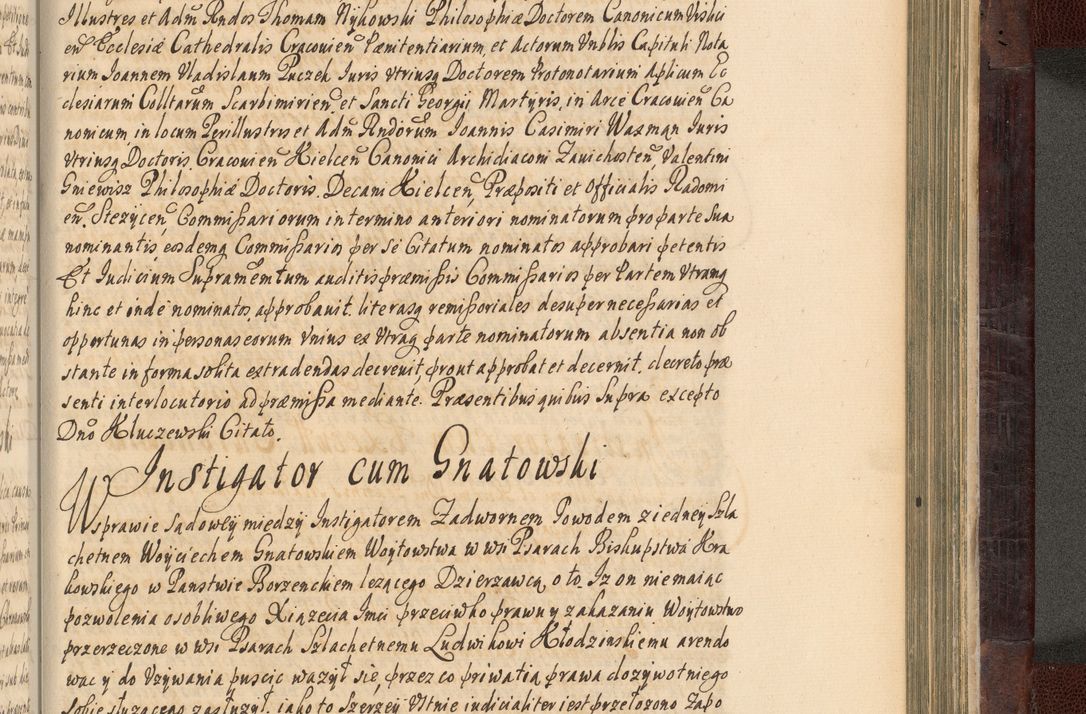 Illustres et Adm Rndos Thomam Nykowski Philosophiæ Doctorem Canonicum Vislici
en Ecclesiæ Cathedralis Cracouien Pænitentiarium, et Actorum Vnblis Capituli Nota
rium Ioannem Vladislaum Puczek Iuris Vtriusq Doctorem Protonotarium Aplicum Ec
clesiarum Colltarum Scarbimirien et Sancti Georgii Martyris, in Arce Cracouien Ca
nonicum, in locum Perillustris et Adm Rndorum Ioannis Casimiri Waxman Iuris
Vtriusq Doctoris Cracouien Kielcen Canonici Archidiaconi Zauichosten, Valentini
Gniewisz Philosophiæ Doctoris. Decani Kielcen, Præpositi et Officialis Radomi
en, Stezycen, Commissariorum in termino anteriori nominatorum pro parte Sua
nominantis, eosdemq Commissarios per se Citatum nominatos approbari petentis
Et Iudicium Supramentum auditis præmissis Commissarios per Partem Vtramq
hinc et inde nominatos, approbauit, literasq remissoriales desuper necessarias et
opportunas in personas eorum Vnius ex Vtraq parte nominatorum absentia non ob
stante in forma solita extradendas decreuit, prout approbat et decernit, decreto præ
senti interlocutorio ad præmissa mediante. Præsentibus quibus Supra excepto
Dno Kluczewski Citato.
Instigator cum Gnatowski
W sprawie sądowey między Instigatorem Zadwornem Powodem z iedney Szla
chetnem Woyciechem Gnatowskiem Woytowstwa w wsi Psarach Biskupstwa Kra
kowskiego w Panstwie Borzenckiem lezącego Dzierzawcą, o to. Iz on niemaiąc
pozwolenia osobliwego Xiązecia Imci przeciwko prawu y zakazaniu Woytowstwo
przerzeczone w wsi Psarach Szlachetnemu Ludwikowi Kłodzinskiemu arendo
wac y do Vzywania puscic wazył się, przez co priwatią prawa dozywotniego
sobie słuzącego zasłuzył, iako to Szerzey Vstnie iudicialiter iest przełozono Zapo